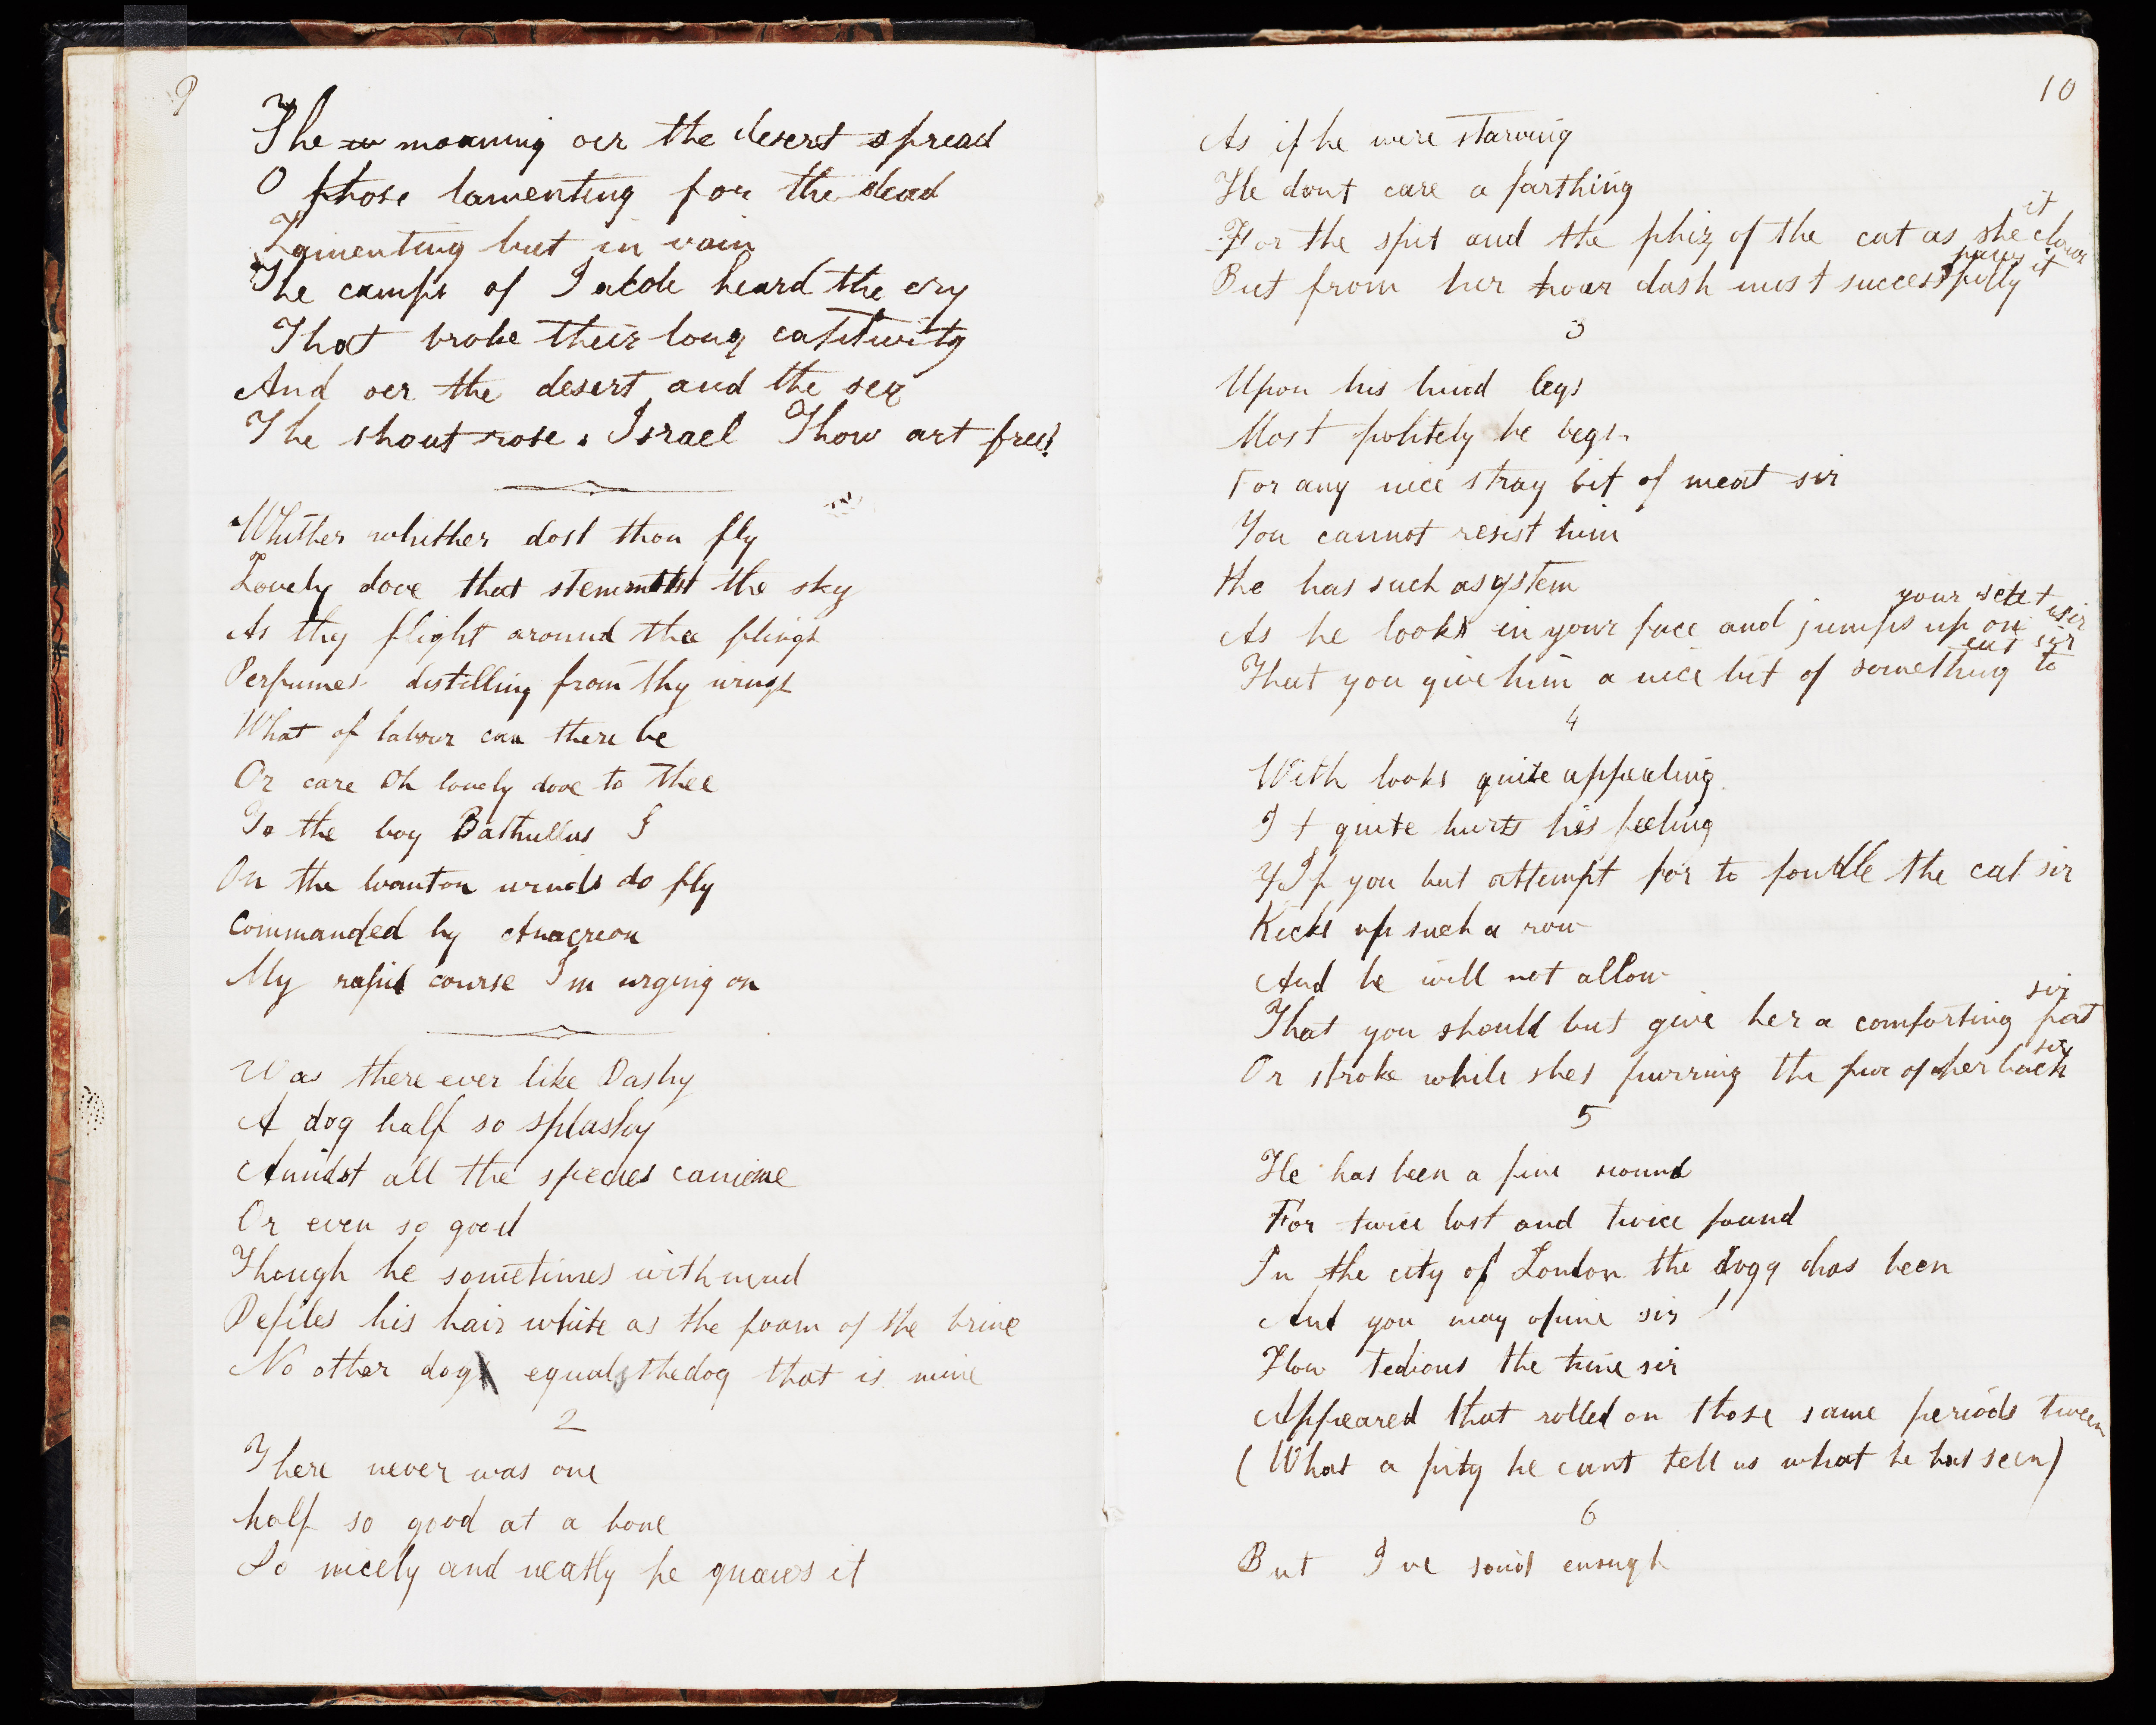 9
The moaning oer the desert spread
O those lamenting for the dead
Lamenting but in vain
The camps of Jacob heard the cry
That broke their long captivity
And oer the desert and the sea
The shout rose. Israel Thou art free!
Whither whither dost thou fly
Lovely dove that stemmest the sky
As thy flight around thee flings
Perfumes distilling from thy wings
What of labour can there be
Or care Oh lovely dove to thee
To the boy Bathullus I
On the wanton winds do fly
Commanded by Anacreon
My rapid course Im urging on
Was there ever like Dashy
A dog half so splashy
Amidst all the species canine
Or even so good
Though he sometimes with mud
Defiles his hair white as the foam of the brine
No other dog equals the dog that is mine
2
There never was one
half so good at a bone
So nicely and neatly he gnaws it
10
As if he were starving
He dont care a farthing
For the spit and the phiz of the cat as she claws it
But from her dash most successfully paws it
3
Upon his hind legs
Most politely he begs
For any nice stray bit of meat sir
You cannot resist him
He has such a system
As he looks in your face and jumps up on your seat sir
That you give him a nice bit of something to eat sir
4
With looks quite appealing
It quite hurts his feeling
If you but attempt for to fondle the cat sir
Kicks up such a row
And he will not allow
That you should but give her a comforting pat sir
Or stroke while shes purring the fur of her back sir
5
He has been a fine round
For twice lost and twice found
In the city of London the dogg has been
And you may opine sir
How tedious the time sir
Appeared that rolled on those same periods tween
(What a pity he cant tell us what he has seen)
6
But Ive said enough